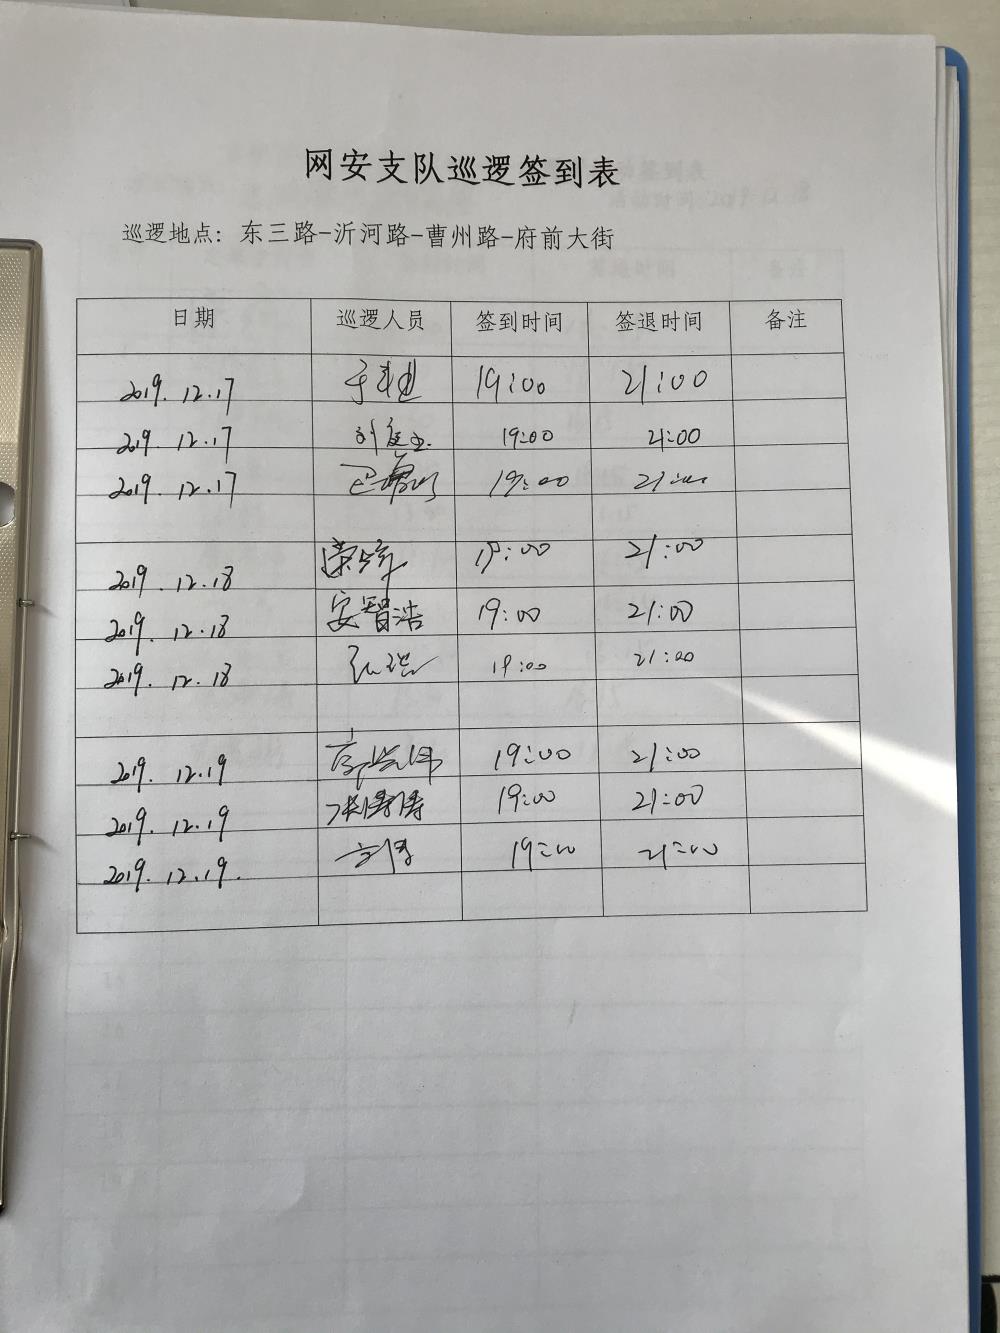 网安支队巡逻签到表
巡逻地点：东三路-沂河路-曹州路-府前大街
日期 巡逻人员 签到时间 签退时间 备注
2019.12.17 19:00 21:00
2019.12.17 19:00 21:00
2019.12.17 19:00 21:00
2019.12.18 19:00 21:00
2019.12.18 安智浩 19:00 21:00
2019.12.18 19:00 21:00
2019.12.19 19:00 21:00
2019.12.19 张涛涛 19:00 21:00
2019.12.19. 19:00 21:00